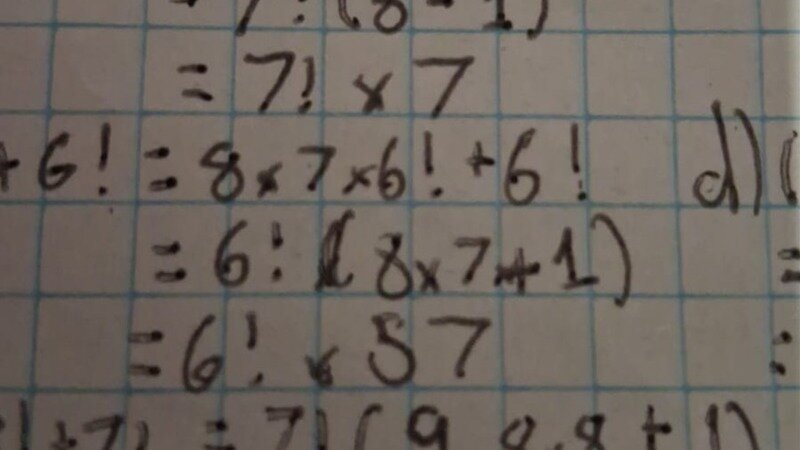 = 7! (8 - 1)
= 7! × 7
+ 6! = 8 × 7 × 6! + 6! d) (
= 6! ( 8 × 7 + 1)
= 6! × 57
= 7! ( 9